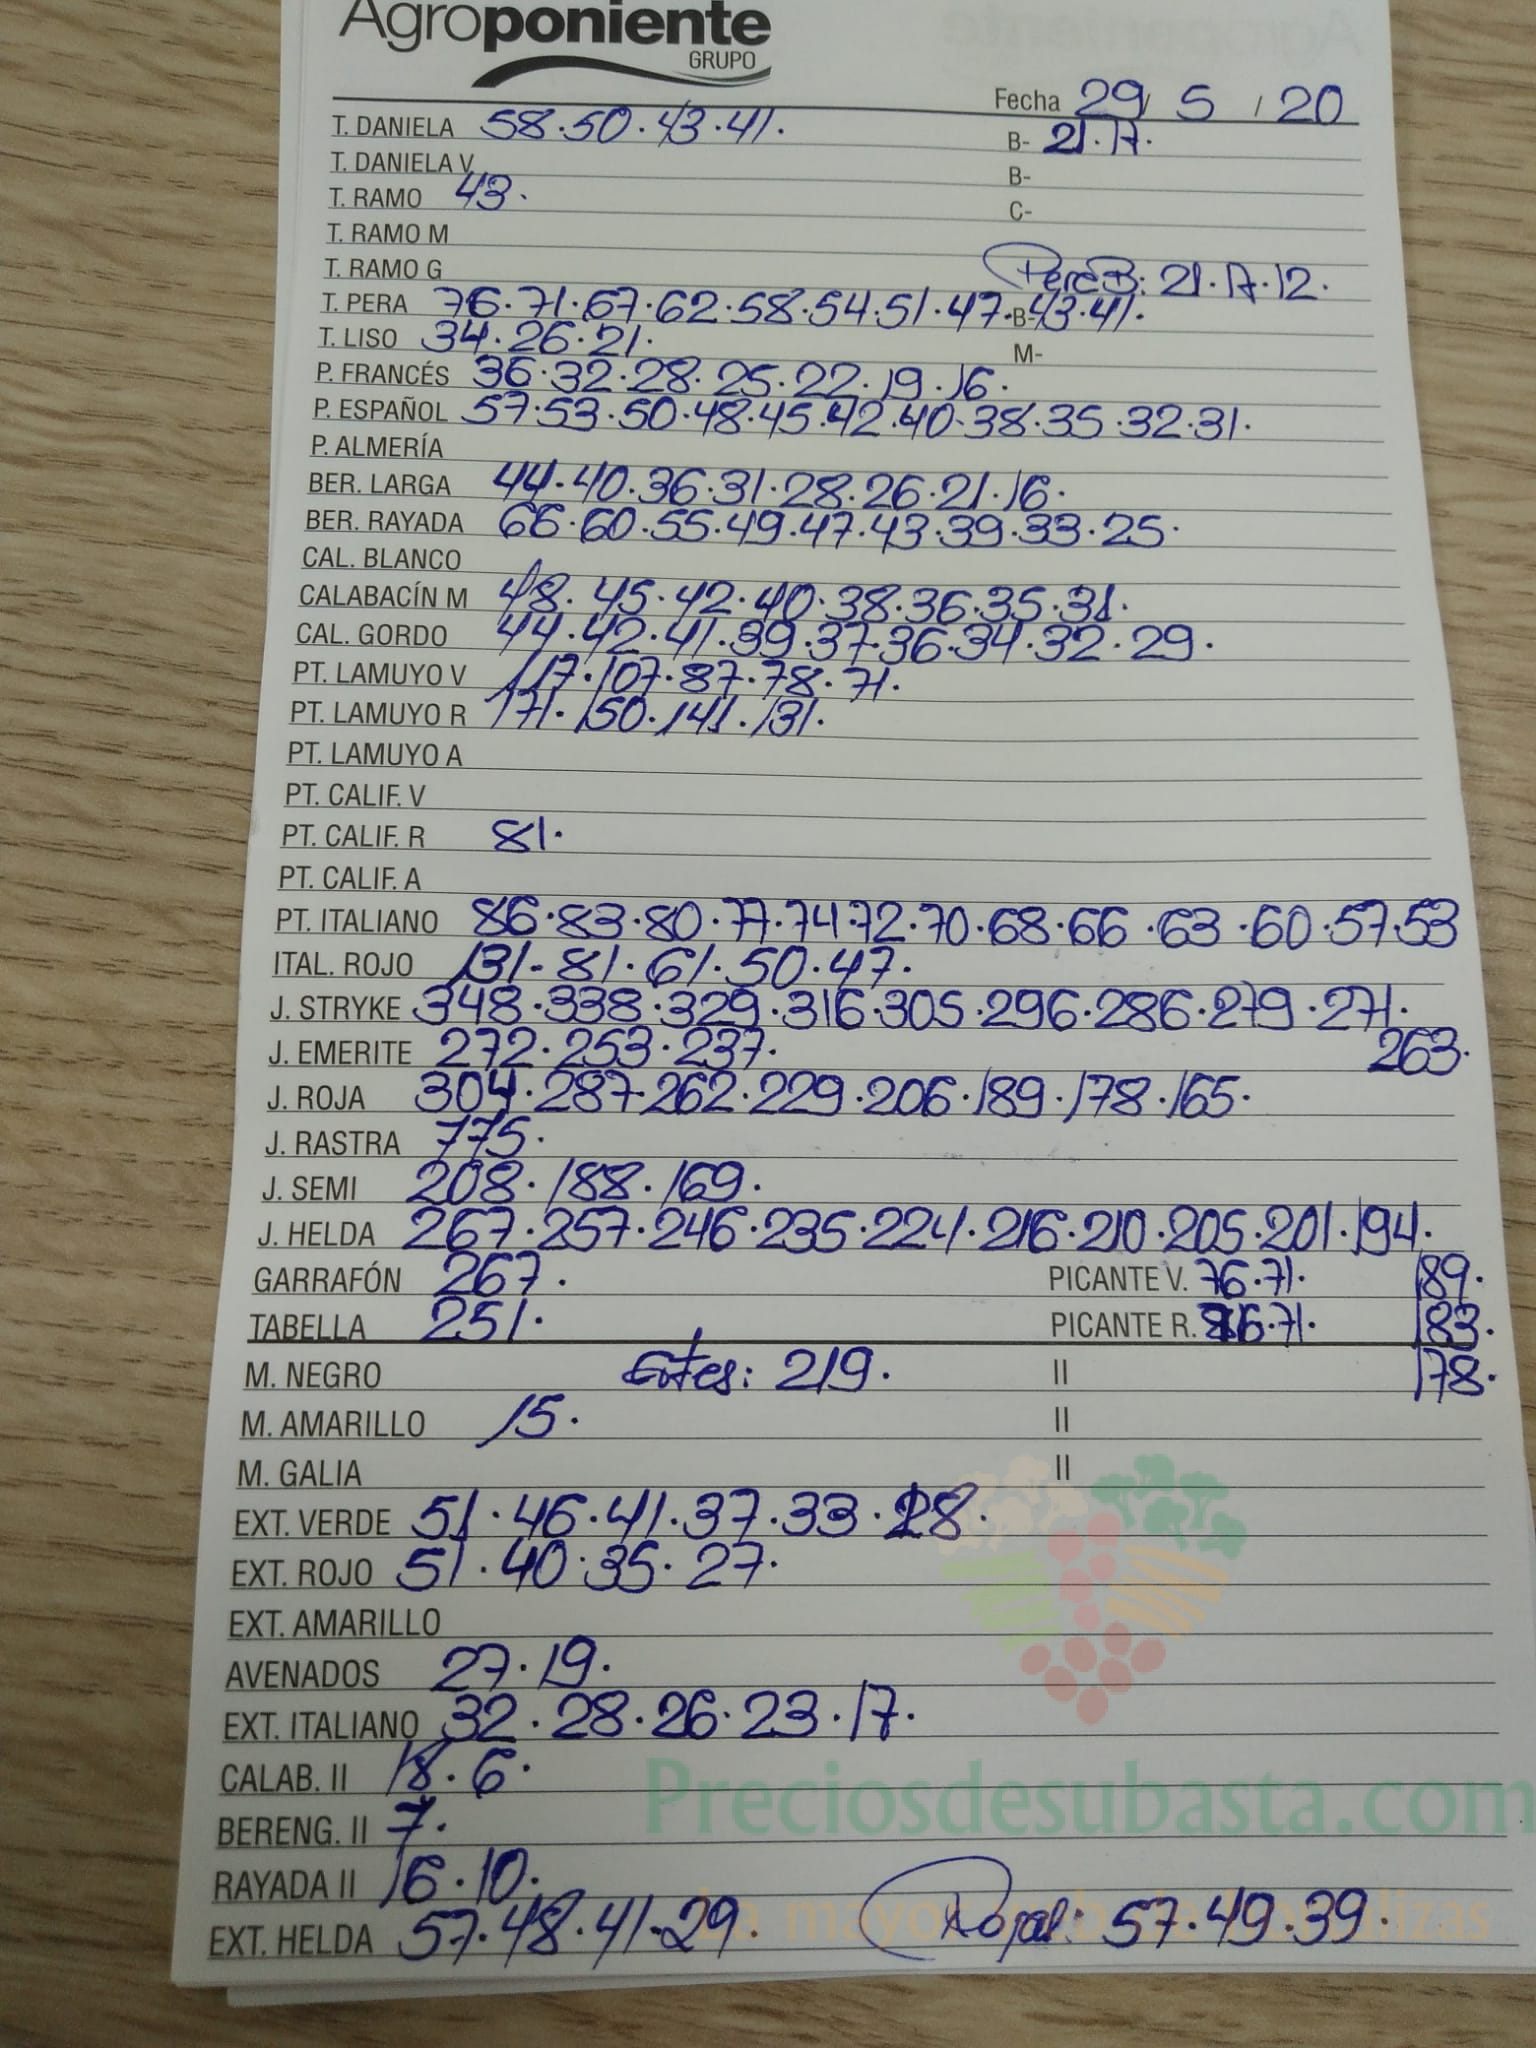 Agroponiente
GRUPO
Fecha 29/ 5 / 20
T. DANIELA 58·50·43·41· B- 21·17·
T. DANIELA V B-
T. RAMO 43· C-
T. RAMO M
T. RAMO G Pera B: 21·17·12·
T. PERA 76·71·67·62·58·54·51·47·B-43·41·
T. LISO 34·26·21· M-
P. FRANCÉS 36·32·28·25·22·19·16·
P. ESPAÑOL 57·53·50·48·45·42·40·38·35·32·31·
P. ALMERÍA
BER. LARGA 44·40·36·31·28·26·21·16·
BER. RAYADA 66·60·55·49·47·43·39·33·25·
CAL. BLANCO
CALABACÍN M 48·45·42·40·38·36·35·31·
CAL. GORDO 44·42·41·39·37·36·34·32·29·
PT. LAMUYO V 117·107·87·78·71·
PT. LAMUYO R 171·150·141·131·
PT. LAMUYO A
PT. CALIF. V
PT. CALIF. R 81·
PT. CALIF. A
PT. ITALIANO 86·83·80·77·74·72·70·68·66·63·60·57·53
ITAL. ROJO 131·81·61·50·47·
J. STRYKE 348·338·329·316·305·296·286·279·271·
J. EMERITE 272·253·237· 263·
J. ROJA 304·287·262·229·206·189·178·165·
J. RASTRA 775·
J. SEMI 208·188·169·
J. HELDA 267·257·246·235·224·216·210·205·201·194·
GARRAFÓN 267· PICANTE V. 76·71· 189·
TABELLA 251· PICANTE R. 76·71· 183·
M. NEGRO 219· II 178·
M. AMARILLO 15· II
M. GALIA II
EXT. VERDE 51·46·41·37·33·28·
EXT. ROJO 51·40·35·27·
EXT. AMARILLO
AVENADOS 27·19·
EXT. ITALIANO 32·28·26·23·17·
CALAB. II 18·6·
Preciosdesubasta.com
BERENG. II 7·
RAYADA II 16·10·
EXT. HELDA 57·48·41·29· Rojal: 57·49·39·